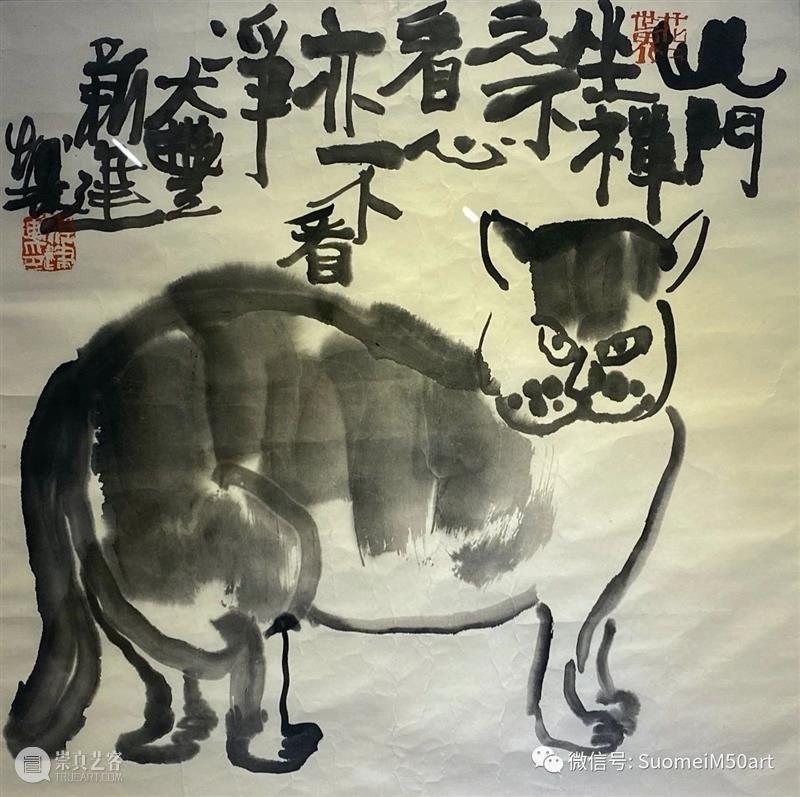 此門
坐禪
元不
看心
亦不看
淨
大豐
新建
製
崇真艺客
TRUEART.COM
微信号: SuomeiM50art